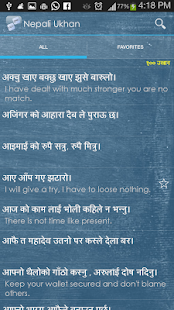 4:18 PM
Nepali Ukhan
ALL
FAVORITES
९०० उखान
अक्कु खाए बक्कु खाए झुसे बारुलो।
I have dealt with much stronger you are no
match.
अजिंगर को आहारा दैव ले पुराऊ छ।
आइमाई को रुपै सत्रु, रुपै मित्रु।
आए आँप गए झटारो।
I will give a try, I have to loose nothing.
आज को काम लाई भोली कहिले न भन्नु।
There is not time like present.
आफै त महादेव उतनो पर कस्ले देला बर।
आफ्नो थैलोको गाँठो कस्नु , अरुलाई दोष नदिनु।
Keep your wallet secured and don't blame
others.